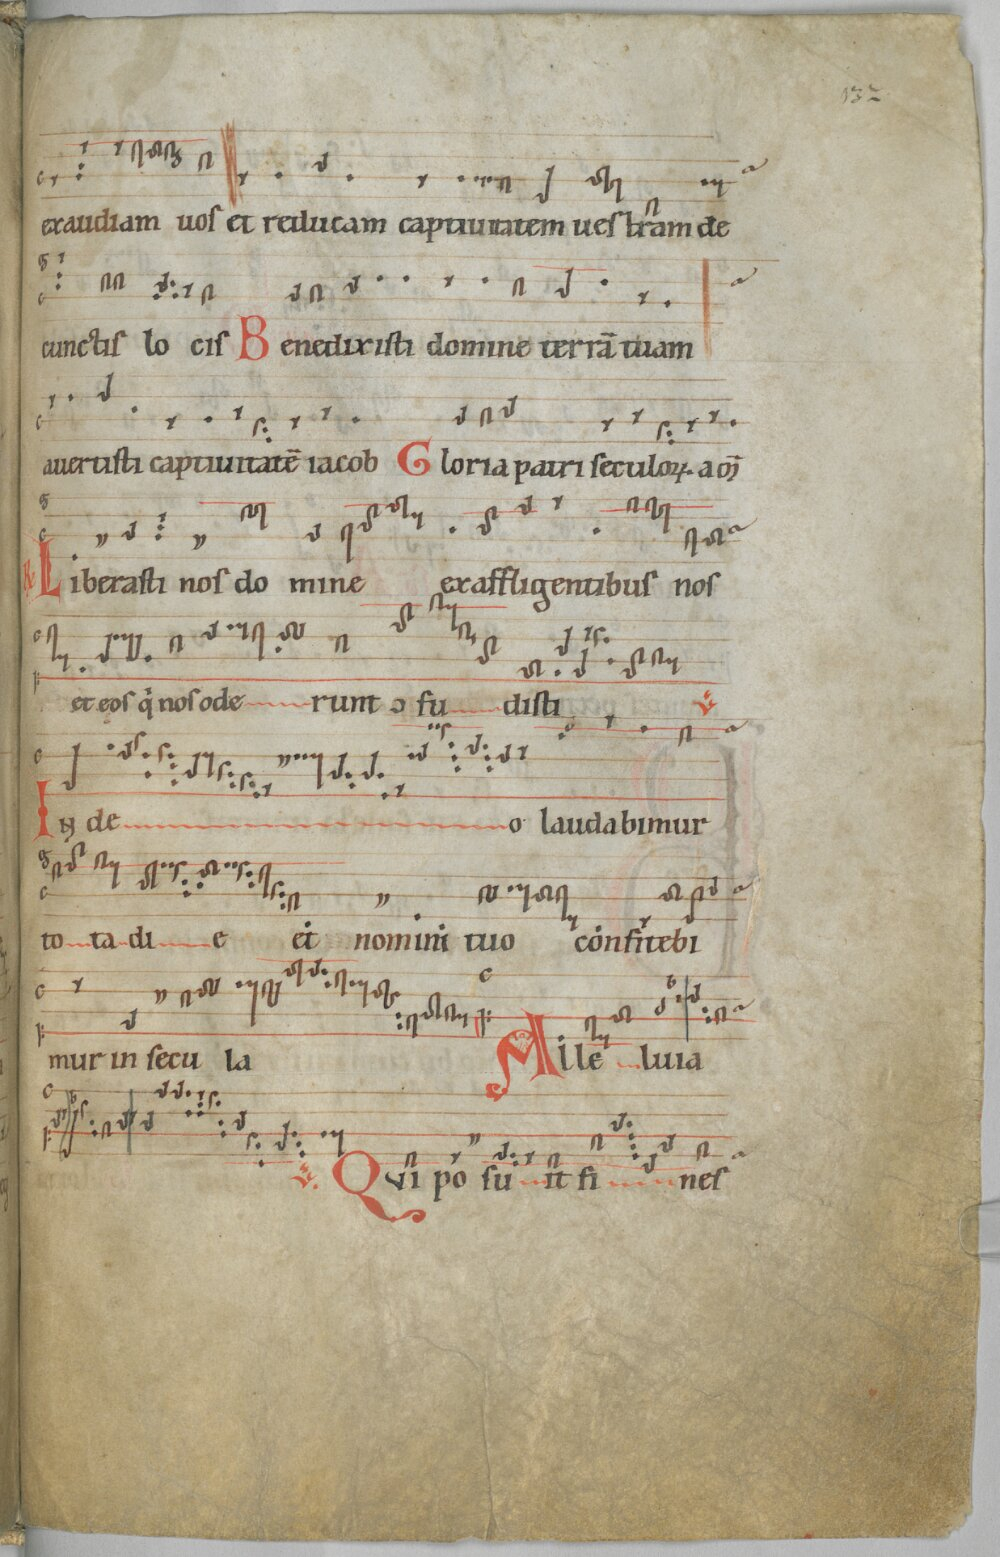 132
exaudiam uos et reducam captiuitatem uestram de
cunctis lo cis Benedixisti domine terrā tuam
auertisti captiuitatē iacob Gloria patri seculoꝝ. a
Liberasti nos do mine ex affligentibus nos
et eos q̇ nos ode runt ɔ fu disti ℣
In de o laudabimur
to ta di e et nomini tuo confitebi
mur in secu la Alle luia
℣. Qui po su it fi nes